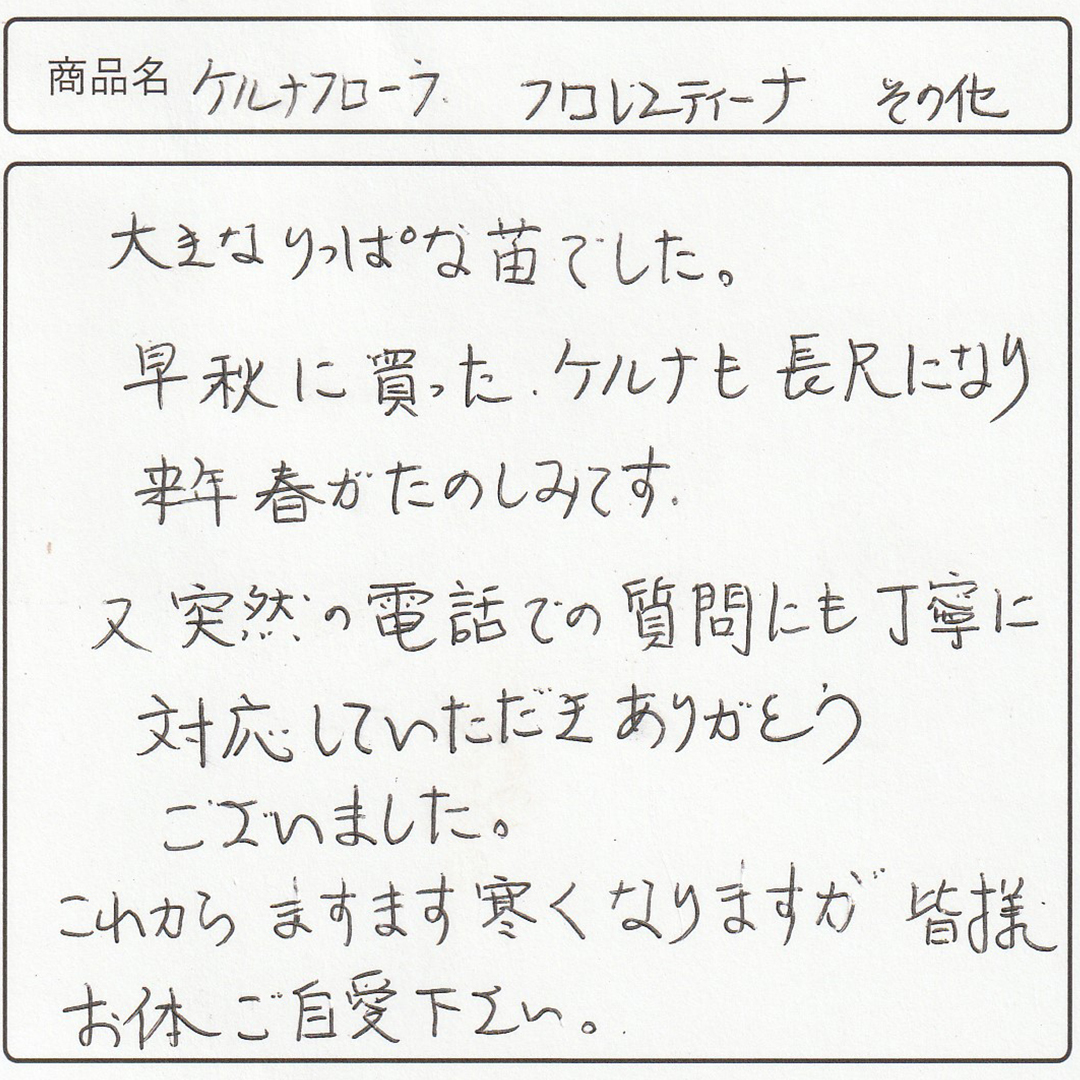 商品名 ケルナフローラ フロレンティーナ その他
大きなりっぱな苗でした。
早秋に買った.ケルナも長尺になり
来年春がたのしみです.
又突然の電話での質問にも丁寧に
対応していただきありがとう
ございました。
これからますます寒くなりますが皆様
お体ご自愛下さい。